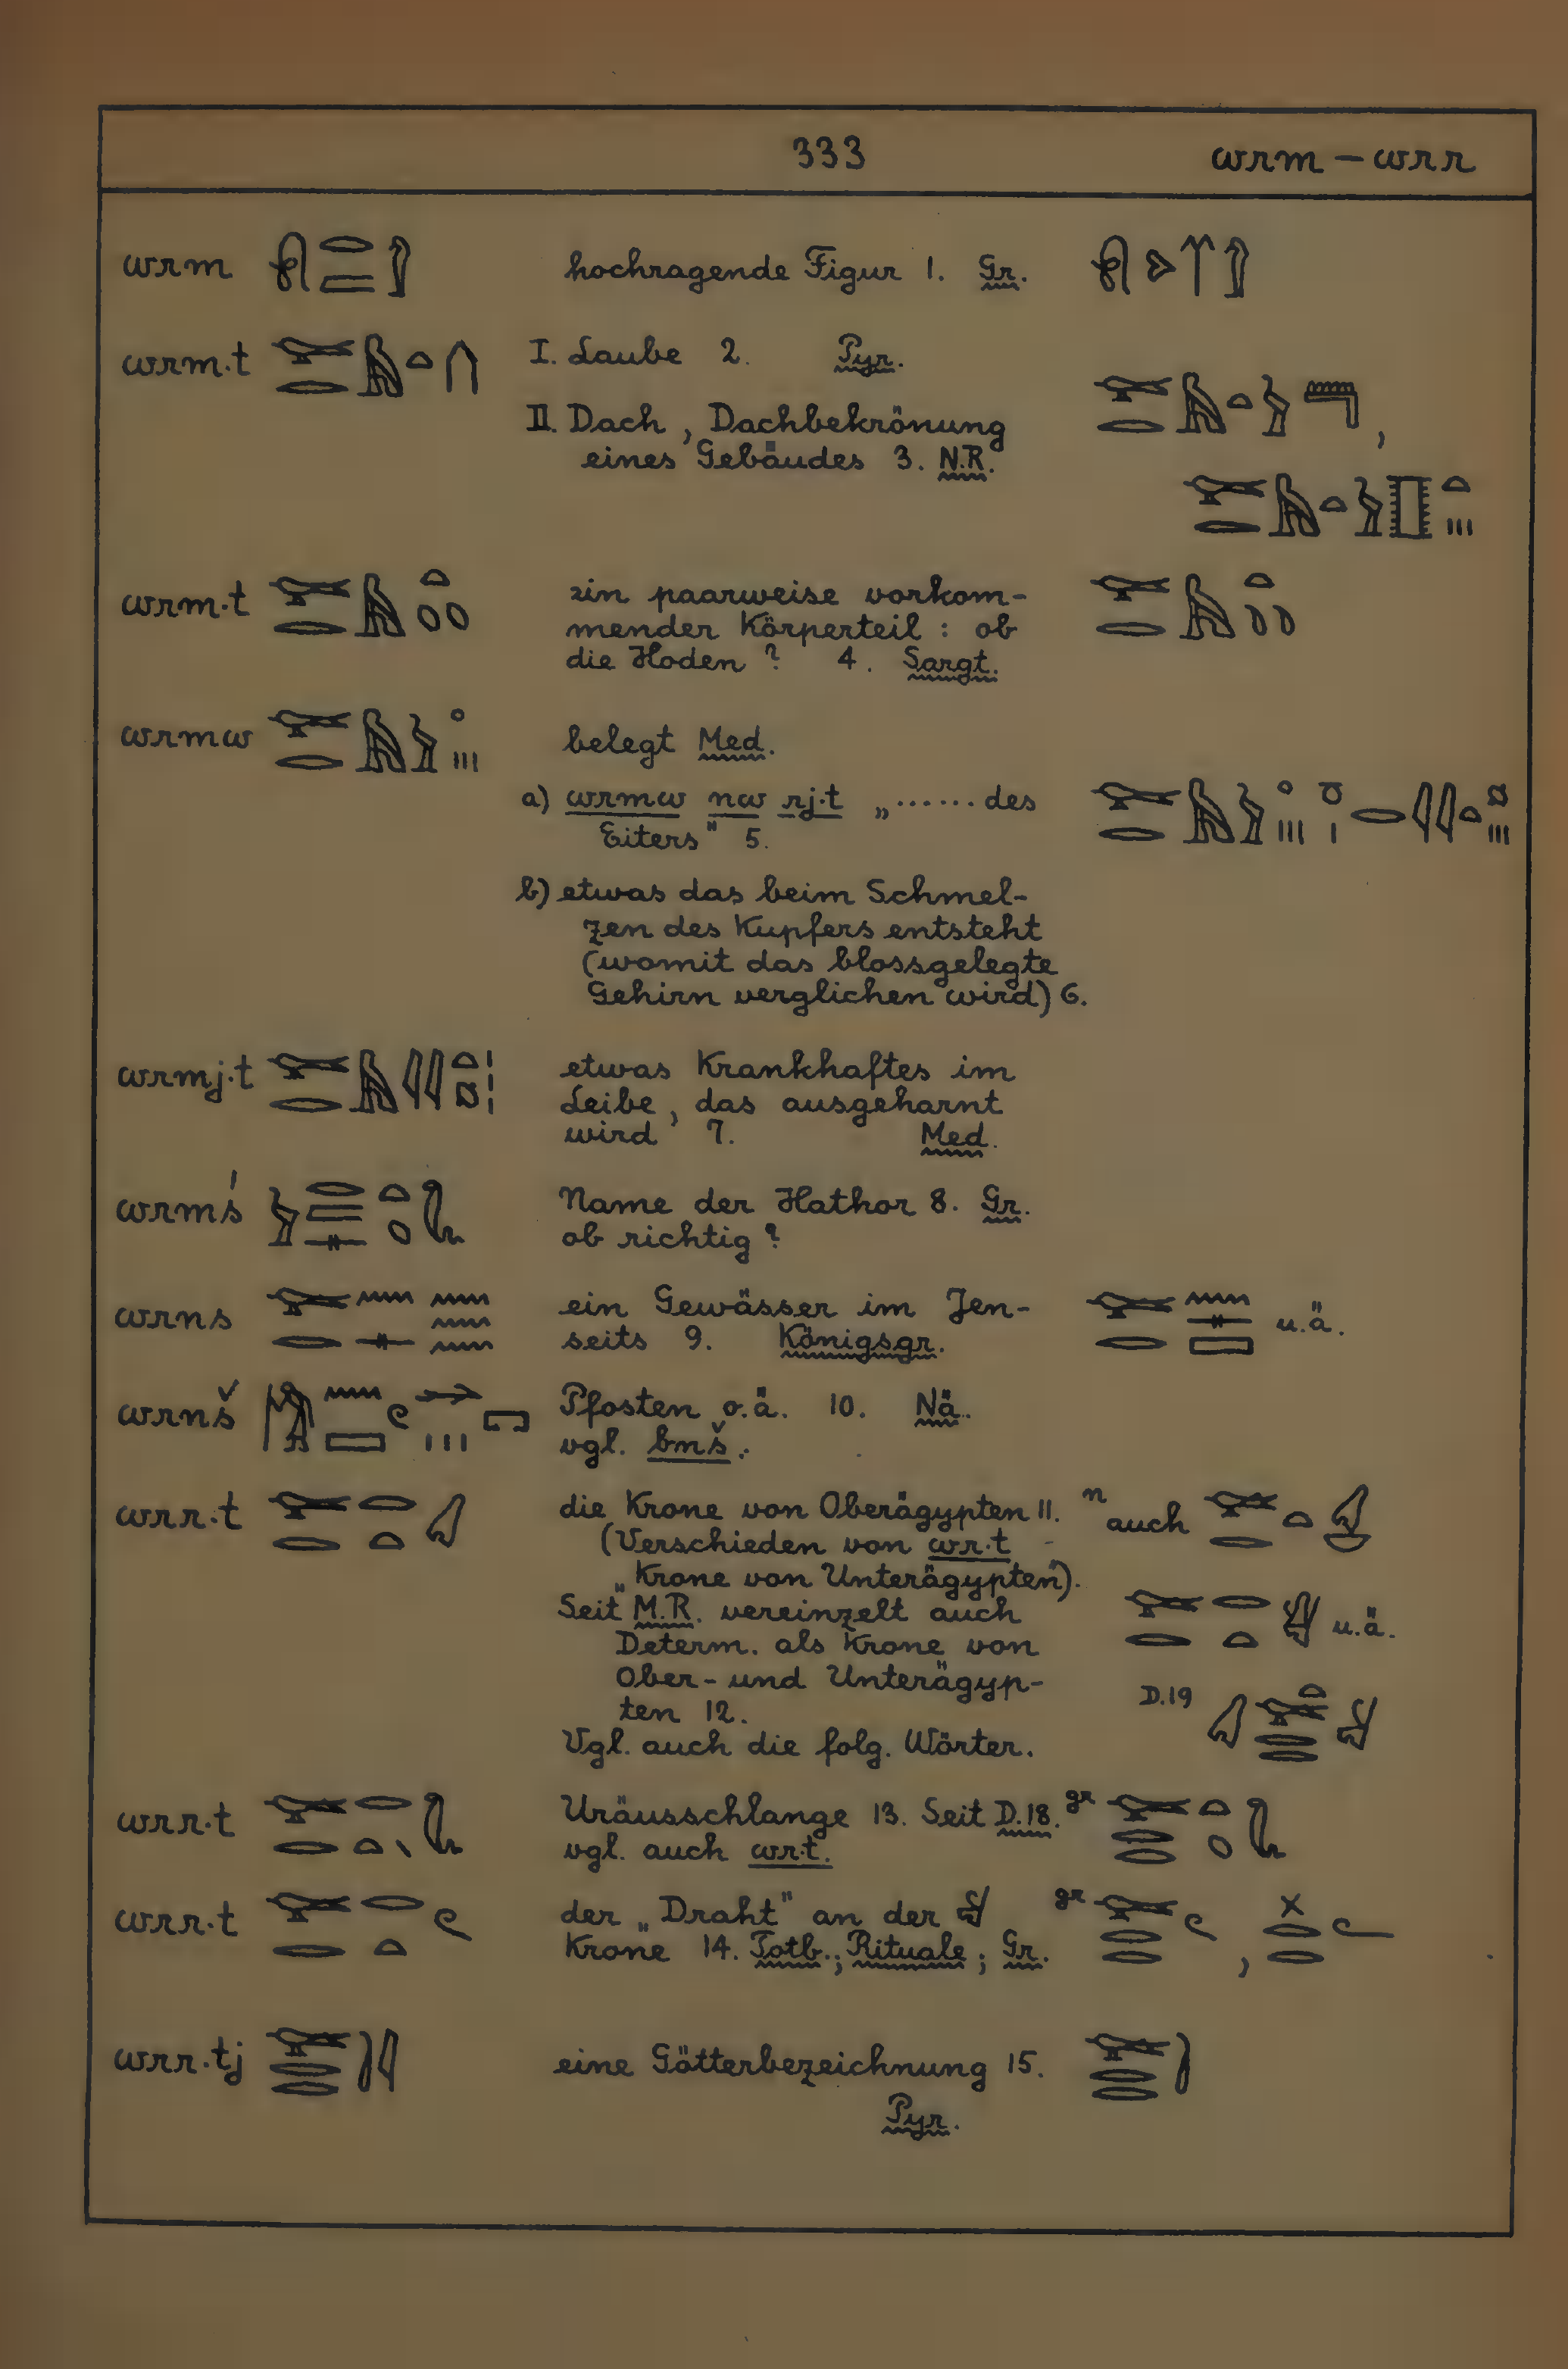 333 wrm – wrr
wrm hochragende Figur 1. Gr.
wrm.t I. Laube 2. Pyr.
II. Dach, Dachbekrönung
eines Gebäudes 3. N.R.
wrm.t ein paarweise vorkom-
mender Körperteil : ob
die Hoden ? 4. Sargt.
wrmw belegt Med.
a) wrmw nw rj.t „...... des
Eiters" 5.
b) etwas das beim Schmel-
zen des Kupfers entsteht
(womit das blossgelegte
Gehirn verglichen wird) 6.
wrmj.t etwas Krankhaftes im
Leibe, das ausgeharnt
wird 7. Med.
wrmś Name der Hathor 8. Gr.
ob richtig ?
wrns ein Gewässer im Jen-
seits 9. Königsgr. u.ä.
wrnš Pfosten o.ä. 10. Nä.
vgl. bnš.
wrr.t die Krone von Oberägypten 11. n auch
(Verschieden von wr.t
„Krone von Unterägypten").
Seit M.R. vereinzelt auch u.ä.
Determ. als Krone von
Ober- und Unterägyp-
ten 12. D.19
Vgl. auch die folg. Wörter.
wrr.t Uräusschlange 13. Seit D.18. gr
vgl. auch wr.t.
wrr.t der „Draht" an der gr
Krone 14. Totb.; Rituale; Gr.
wrr.tj eine Götterbezeichnung 15.
Pyr.